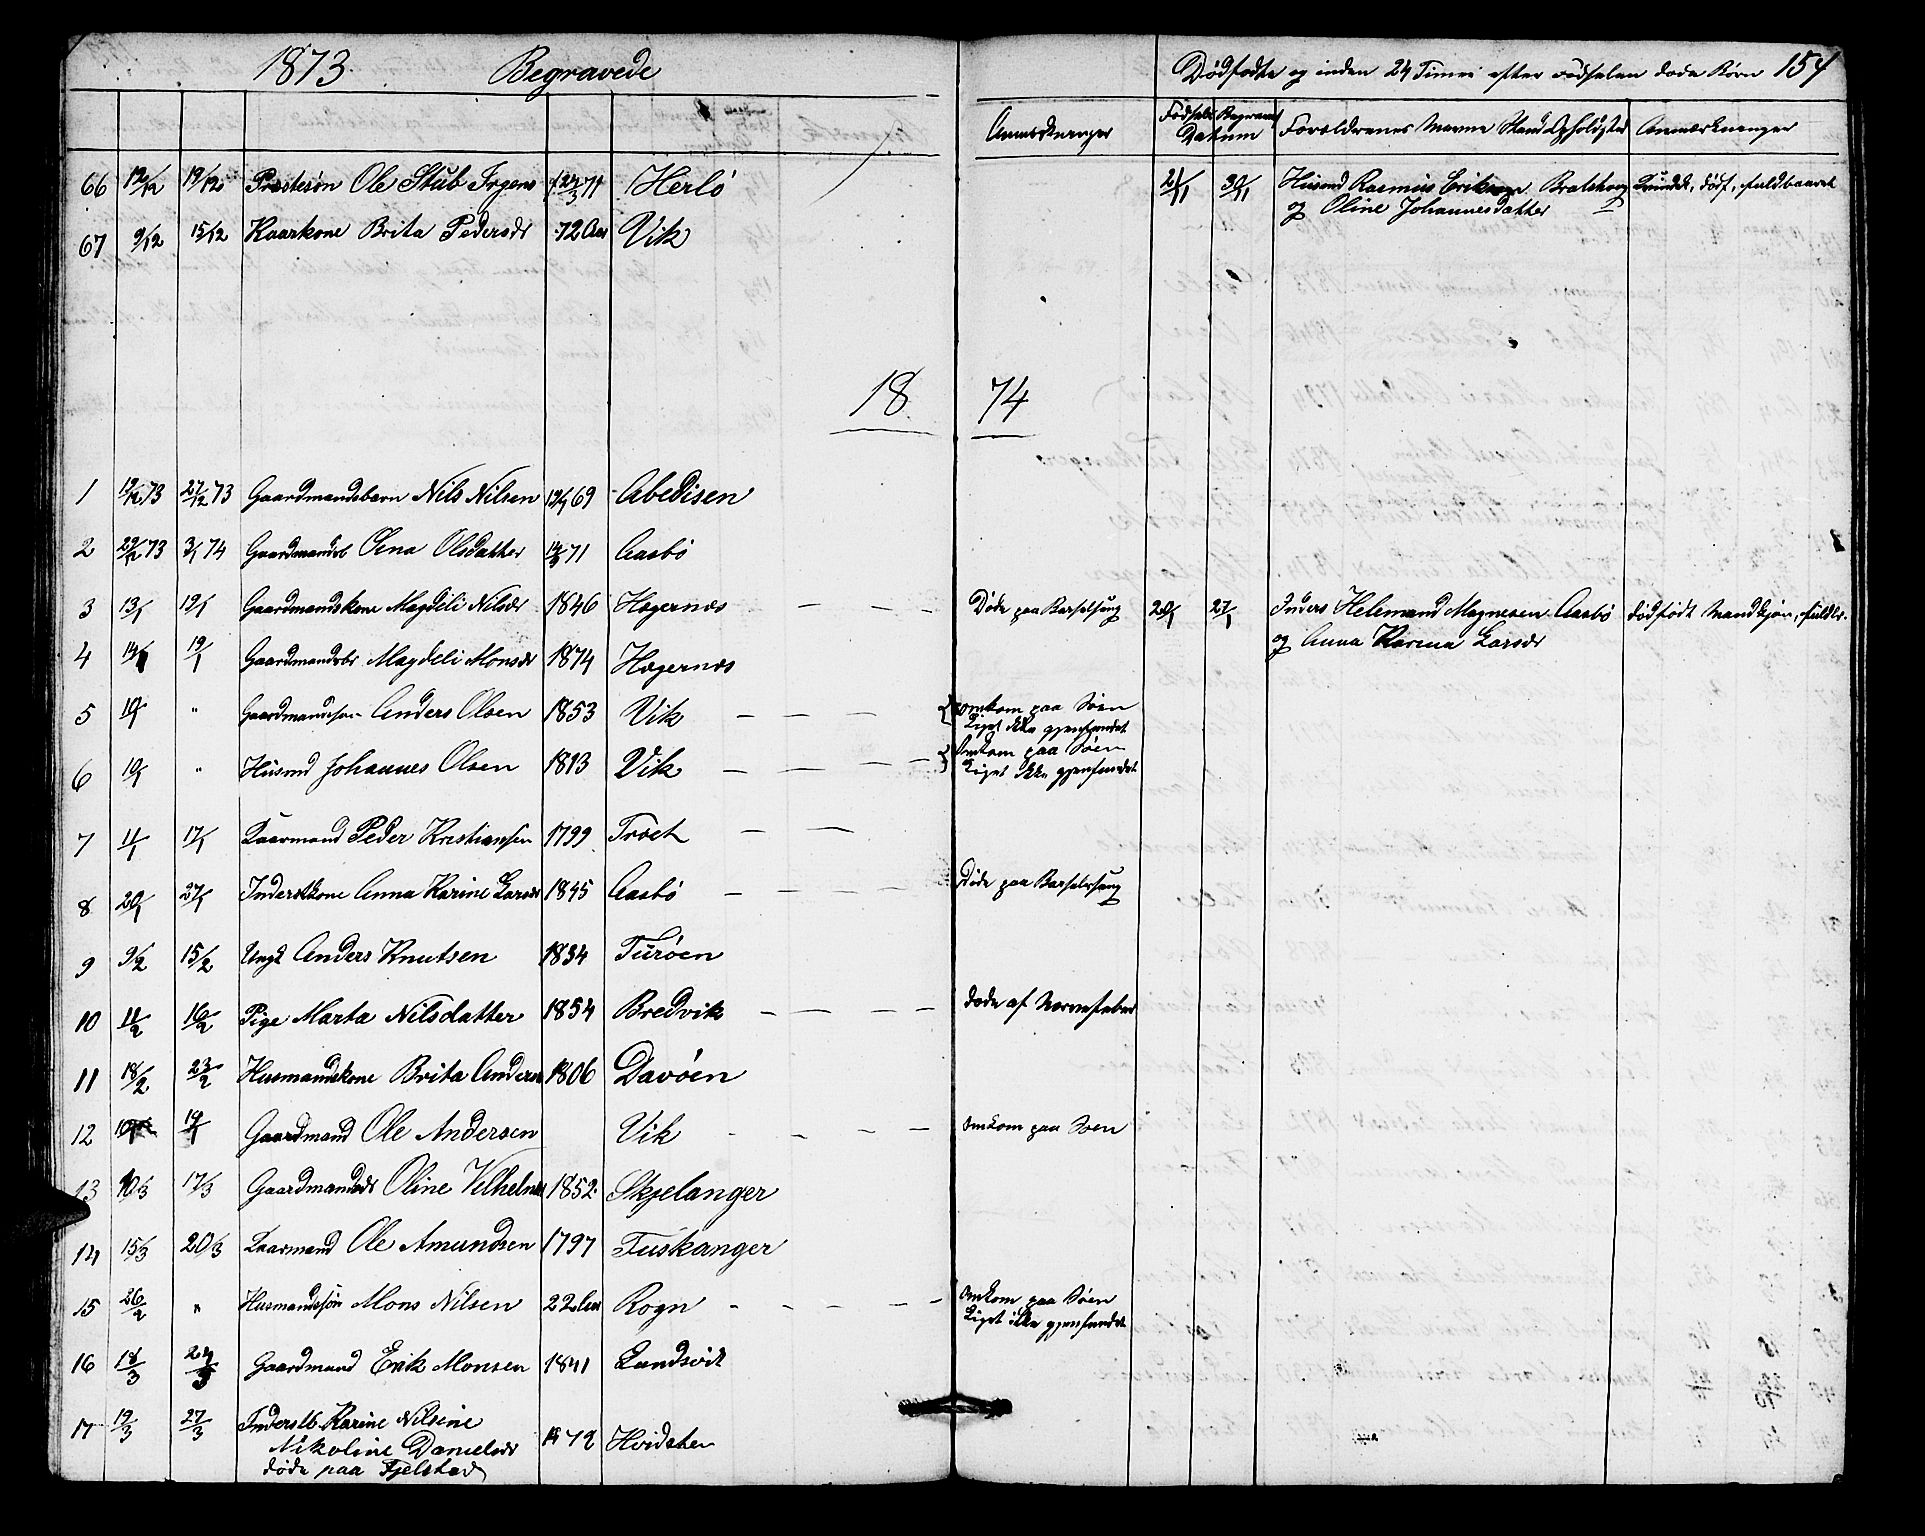 1873. Begravede
Dødfødte og inden 24 Timer efter Fødselen døde Børn 154
Anmærkninger Fødsels Begravel Datum Forældrenes Navne Stand Opholdsted Anmærkninger
66 12/12 19/12 Præstesøn Ole Stub Irgens 71 Herlö
67 9/12 15/12 Kaarkone Brita Pedersdr 72 Aar Vik
30/11 Husmd Rasmus Eriksen
og Oline Johannesdatter
1874
1 19/12 73 27/12 73 Gaardmandsbarn Nils Nilsen 69 Abedisen
2 29/12 73 3/1 74 Gaardmandsb Olena Olsdatter 71 Aasbö
3 13/1 19/1 Gaardmandskone Magdeli Nilsdr 1846 Hagernæs Døde paa Barselseng
20/1 27/1 Inders Helemand Magnesen Aasbö dødfødt Mandkjøn, fuldb.
og Anna Karina Larsdr
4 14/1 19/1 Gaardmandsbr Magdeli Monsdr 1874 Hagernæs
5 10/1 " Gaardmandssøn Anders Olsen 1853 Vik omkom paa Søen
Liget ikke gjenfundet
6 10/1 " Husmd Johannes Olsen 1813 Vik Omkom paa Søen
Liget ikke gjenfundet
7 11/1 17/1 Kaarmand Peder Kristiansen 1799 Tröet
8 20/1 27/1 Inderstkone Anna Karine Larsdr 1845 Aasbö Døde paa Barselseng
9 9/2 15/2 Ungk Anders Knutsen 1834 Turöen
10 11/2 16/2 Pige Marta Nilsdatter 1854 Bredvik døde af Nervefeber
11 18/2 23/2 Husmandskone Brita Andersdr 1806 Davöen
12 19/1 Gaardmand Ole Andersen Vik Omkom paa Søen
13 10/3 17/3 Gaardmandsdr Oline Vilhelmsdr 1852 Skjelanger
14 15/3 20/3 Kaarmand Ole Amundsen 1797 Tuskanger
15 26/2 " Husmandssøn Mons Nilsen 22 Aar Rogn Omkom paa Søen
Liget ikke gjenfundet
16 18/3 24/3 Gaardmand Erik Monsen 1841 Landsvik
17 19/3 27/3 Inderstb. Karine Nilsine
Nikoline Danielsdr 1872 Hvidsten
døde paa Fjelstad